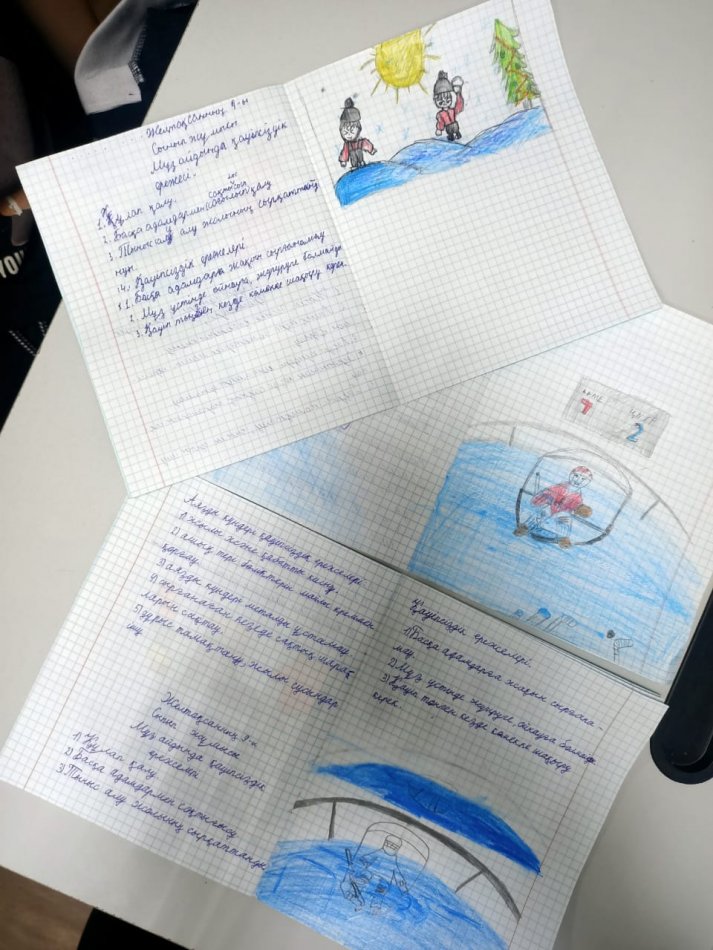 Желтоқсанның 9-ы
Сынып жұмысы
Мұз айдында қауіпсіздік
ережесі.
1. Құлап қалу.
2. Басқа адамдармен соғылып қалу
3. Тыныс алу жолының сырқаттануы
мүн.
4. Қауіпсіздік ережелері.
1. Басқа адамдарға жақын сырғанамау
2. Мұз үстінде ойнауға, жүгіруге болмайды
3. Қауіп төнген кезде көмекке шақыру керек.
7
2
Аязды күндері қауіпсіздік ережелері
1) жылы және қабатты киіну.
2) ашық тері бөліктерін майлы креммен
қорғау.
3) аязды күндері металды ұстамау
4) сырғанаған кезде сақтық шарал
ларын сақтау.
5) дұрыс тамақтану, жылы сусындар
ішу.
Желтоқсанның 9-ы
Сынып жұмысы
Мұз айдында қауіпсіздік
ережесі
1) Құлап қалу
2) Басқа адамдармен соқтығысу
3) Тыныс алу жолының сырқаттануы
4) Қауіпсіздік ережелері.
1) Басқа адамдарға жақын сырғана-
мау.
2) Мұз үстінде жүгіруге, ойнауға болмайды
3) Қауіп төнген кезде көмекке шақыру
керек.